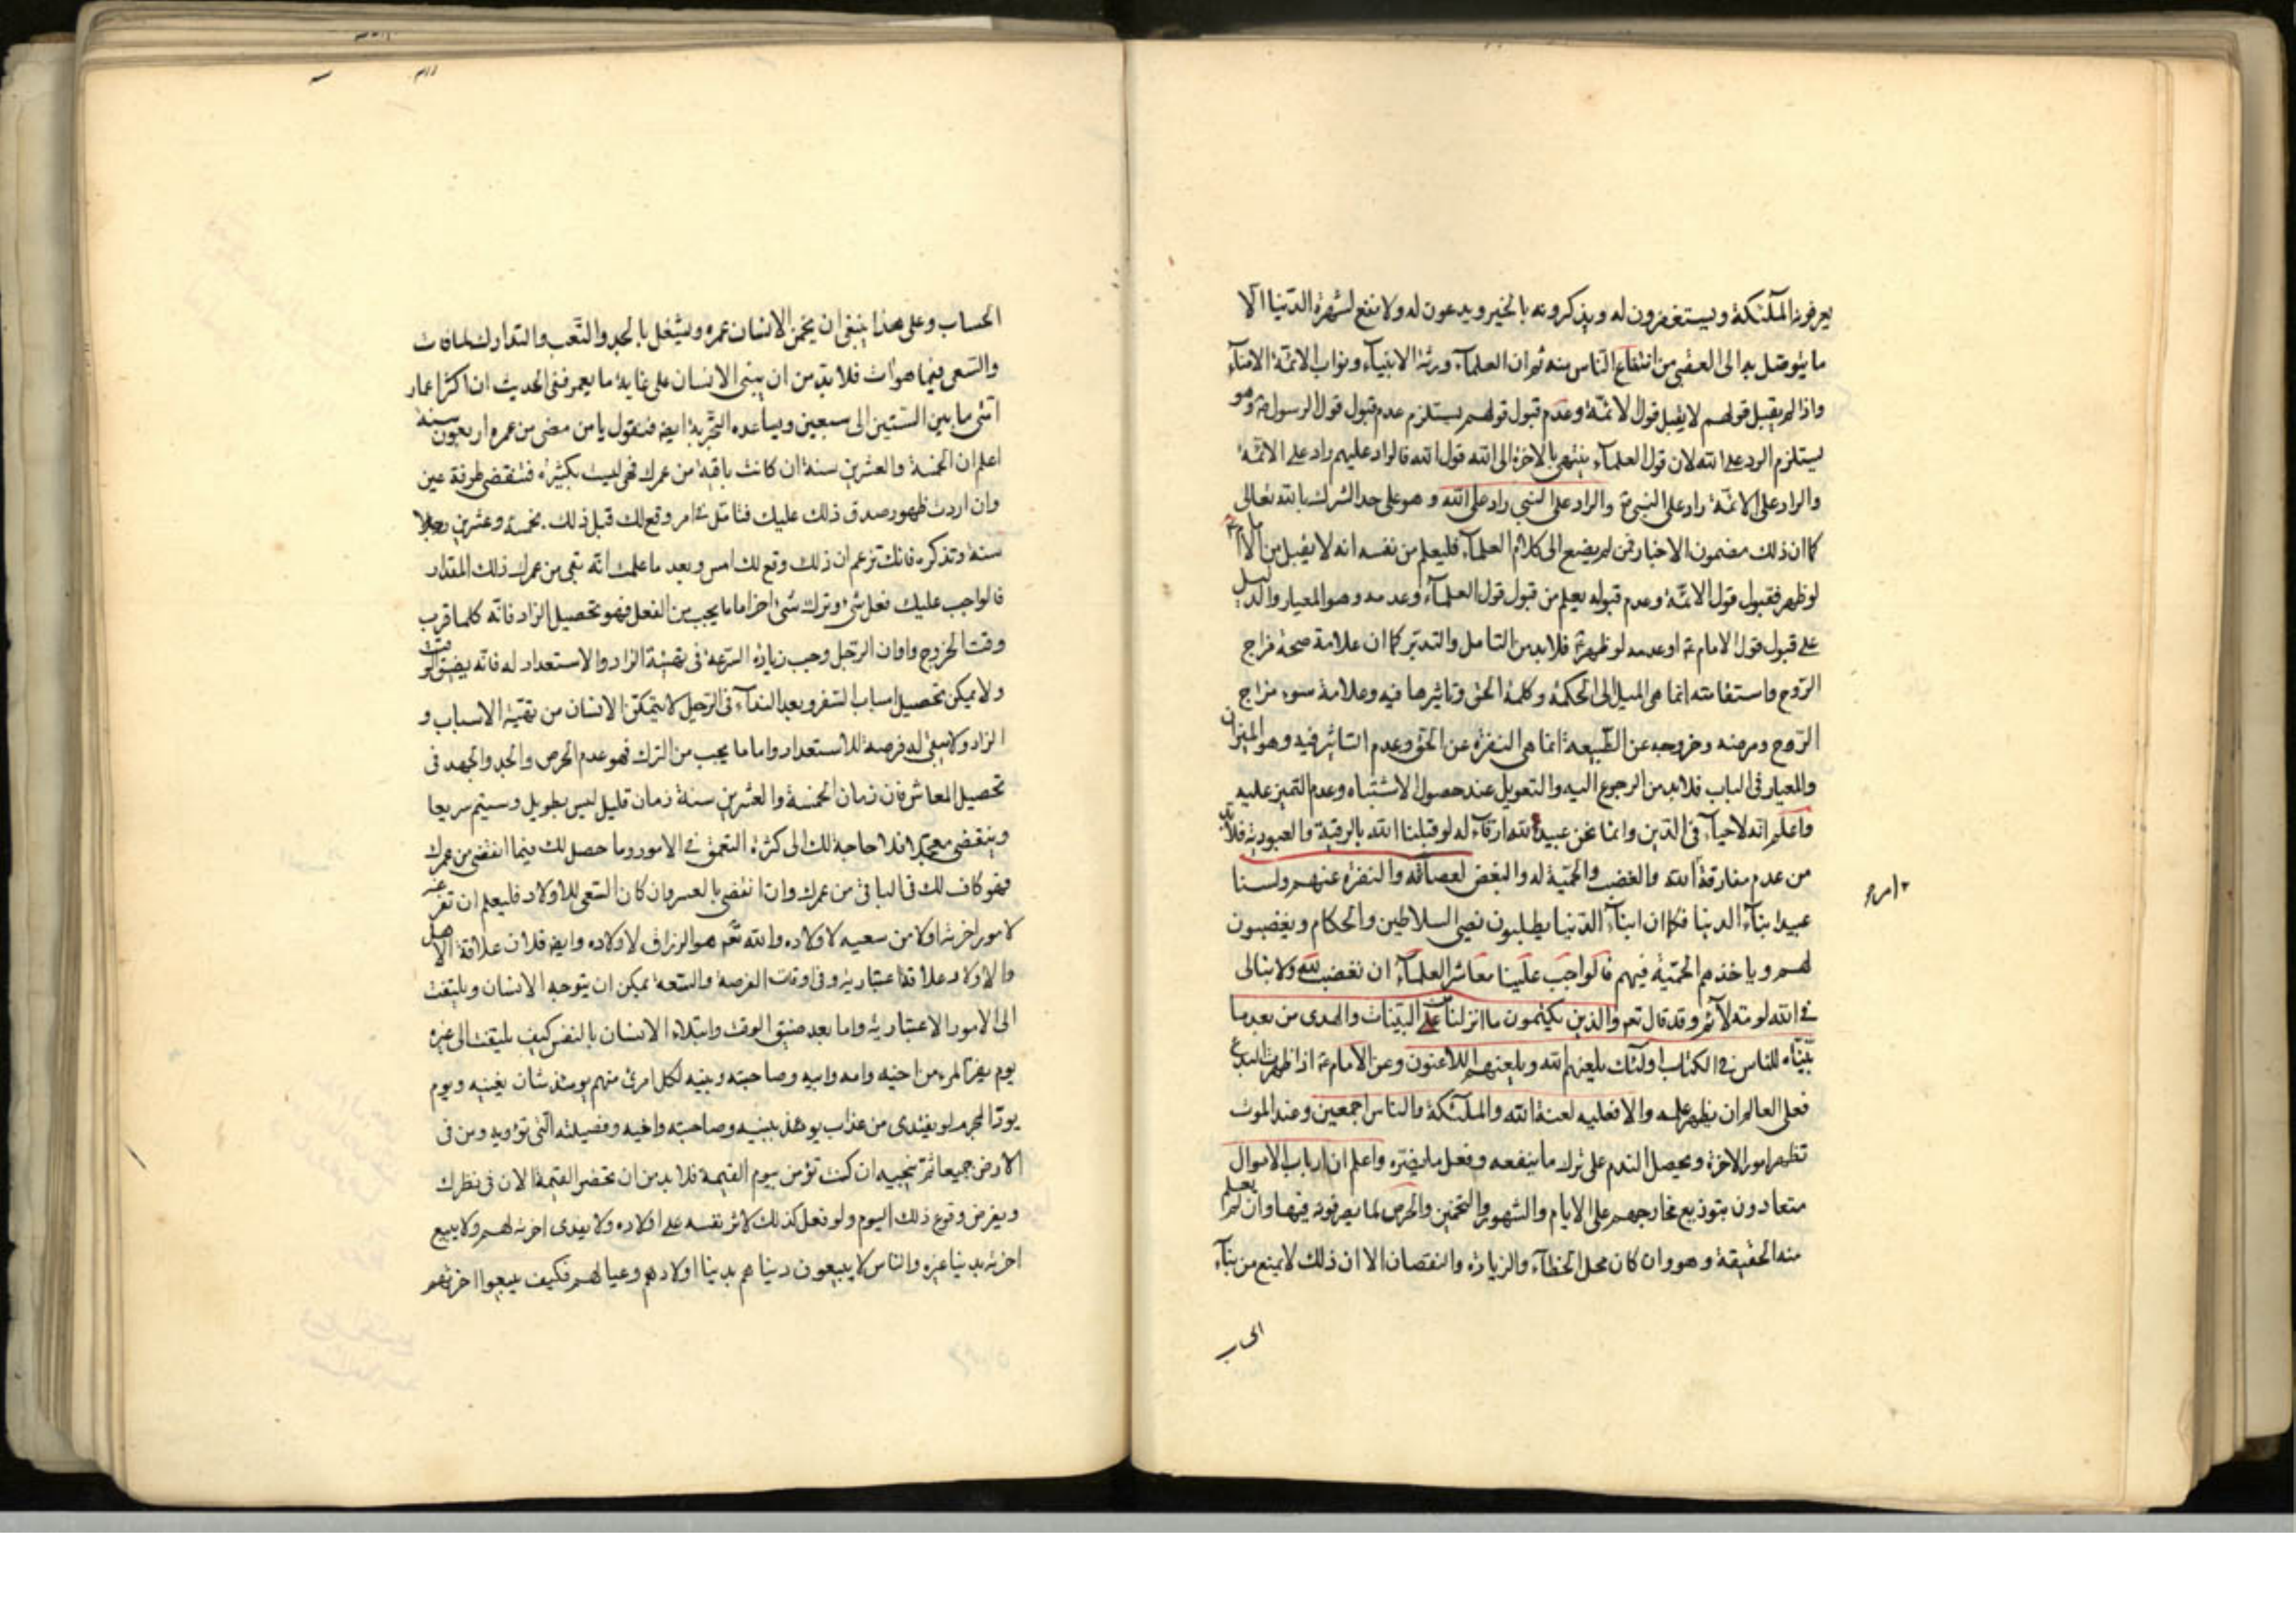 يعرفونه الملئكة ويستغفرون له ويذكرونه بالخير ويدعون له ولا نفع لشهرة الدنيا الا
ما يتوصل به الى العقبى من انتفاع الناس منه ثم ان العلمآء ورثة الانبيآء ونواب الائمة الامنآء
واذا لم يقبل قولهم لا يقبل قول الائمة وعدم قبول قولهم يستلزم عدم قبول قول الرسول ص وهو
يستلزم الرد على الله لان قول العلمآء ينتهى بالاخرة الى الله قول الله فالراد عليهم راد على الائمة
والراد على الائمة راد على النبى ص والراد على النبى راد على الله وهو على حد الشرك بالله تعالى
كما ان ذلك مضمون الاخبار فمن لم يضع الى كلام العلمآء فليعلم من نفسه انه لا يقبل من الامام ع
لو ظهر فقبول قول الائمة وعدم قبوله يعلم من قبول قول العلمآء وعدمه وهو المعيار والدليل
على قبول قول الامام ع او عدمه لو ظهر ع فلا بد من التامل والتدبر كما ان علامة صحة مزاج
الروح واستقامته انما هى الميل الى الحكمة وكلمة الحق وتاثيرها فيه وعلامة سوء مزاج
الروح ومرضه وخروجه عن الطبيعة انما هى النفرة عن الحق وعدم التاثير فيه وهو الميزان
والمعيار فى الباب فلا بد من الرجوع اليه والتعويل عند حصول الاشتباه وعدم التميز عليه
واعلم انه لا حيآء فى الدين وانما نحن عبيد الله ارقآء له لو قبلنا الله بالرقية والعبودية فلا بد
من عدم مفارقة الله والغضب والحمية له والبغض لعصاته والنفرة عنهم ولسنا
عبيد ابنآء الدنيا فكما ان ابنآء الدنيا يطلبون رضى السلاطين والحكام ويغضبون
لهم وياخذهم الحمية فيهم فالواجب علينا معاشر العلمآء ان نغضب لله ولا نبالى
فى الله لومة لآئم وقد قال تعم والذين يكتمون ما انزلنا من البينات والهدى من بعد ما
بيناه للناس فى الكتاب اولئك يلعنهم الله ويلعنهم اللاعنون وعن الامام ع اذا ظهرت البدع
فعلى العالم ان يظهر علمه والا فعليه لعنة الله والملئكة والناس اجمعين وعند الموت
تظهر امور الاخرة ويحصل الندم على ترك ما ينفعه وفعل ما يضره واعلم ان ارباب الاموال
متعادون بتوزيع مخارجهم على الايام والشهور والتخمين والخرص لما يصرفونه فيها وان لم يعلم
منه الحقيقة وهو وان كان محل الخطآء والزيادة والنقصان الا ان ذلك لا يمنع من بنآء
الحساب
الحساب وعلى هذا ينبغى ان يخمن الانسان عمره ويشغل بالجد والتعب والتدارك لما فات
والسعى فيما هو ات فلا بد من ان يبنى الانسان على غاية ما يعمر ففى الحديث ان اكثر اعمار
امتى ما بين الستين الى سبعين ويساعده التجربة ايضا فنقول يا من مضى من عمره اربعون سنة
اعلم ان الخمسة والعشرين سنة ان كانت باقية من عمرك فهى ليست بكثيرة فتنقضى طرفة عين
وان اردت ظهور صدق ذلك عليك فتامل فى امر وقع لك قبل ذلك بخمسة وعشرين
سنة وتذكره فانك تزعم ان ذلك وقع لك امس وبعد ما علمت انه بقى من عمرك ذلك المقدار
فالواجب عليك فعل شئ وترك شئ اخر اما ما يجب من الفعل فهو تحصيل الزاد فانه كلما قرب
وقت الخروج واوان الرحيل وجب زيادة السرعة فى تهيئة الزاد والاستعداد له فانه يضيق الوقت
ولا يمكن تحصيل اسباب السفر وبعد الندآء فى الرحيل لا يتمكن الانسان من تهية الاسباب و
الزاد ولا يبقى له فرصة للاستعداد واما ما يجب من الترك فهو عدم الحرص والجد والجهد فى
تحصيل المعاش فان زمان الخمسة والعشرين سنة زمان قليل ليس بطويل وسيتم سريعا
وينقضى معجلا فلا حاجة لك الى كثرة التعمق فى الامور وما حصل لك فيما انقضى من عمرك
فهو كاف لك فى الباقى من عمرك وان انقضى بالعسر وان كان السعى للاولاد فليعلم ان تفرغه
لامور اخرته اولا من سعيه لاولاده والله تعم هو الرزاق لاولاده وايضا فلان علاقة الاهل
والاولاد علاقة اعتبارية وفى اوقات الفرصة والسعة يمكن ان يتوجه الانسان ويلتفت
الى الامور الاعتبارية واما بعد ضيق الوقت وابتلاء الانسان بالنفس كيف يلتفت الى غيره
يوم يفر المرء من اخيه وامه وابيه وصاحبته وبنيه لكل امرئ منهم يومئذ شان يغنيه ويوم
يود المجرم لو يفتدى من عذاب يومئذ ببنيه وصاحبته واخيه وفصيلته التى تؤويه ومن فى
الارض جميعا ثم ينجيه ان كنت تؤمن بيوم القيمة فلا بد من ان تحضر القيمة الان فى نظرك
ويفرض وقوع ذلك اليوم ولو فعل كذلك لاثر نفسه على اولاده ولا يفدى اخرته لهم ولا يبيع
اخرته بدنيا غيره والناس لا يبيعون دنياهم بدنيا اولادهم وعيالهم فكيف يبيعوا اخرتهم